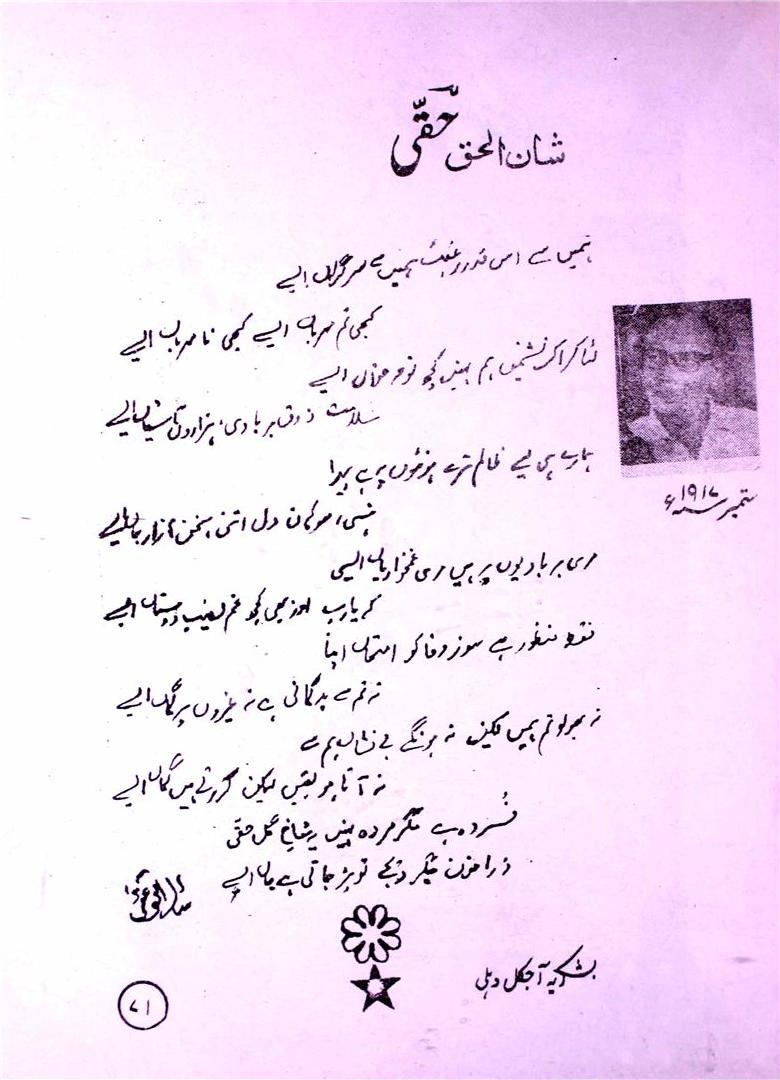 شان الحق حقّی
ہمیں سے اس قدر رغبت ہمیں سے سرگراں ایسے
کبھی تم مہرباں ایسے کبھی نامہرباں ایسے
لٹا کر اک نشیمن ہم نہیں کچھ نوحہ خواں ایسے
سلامت ذوق بربادی، ہزاروں آشیاں ایسے
ہمارے ہی لیے ظالم ترے ہونٹوں پہ ہے پیدا
ہنسی دل اتنی سخن آزار جاں ایسے
مری بربادیوں پر ہیں مری غمخواریاں ایسی
کہ یارب اور بھی کچھ غم نصیب دوستاں ایسے
فقط منظور ہے سوز وفا کو امتحاں اپنا
نہ تم سے بدگمانی ہے نہ غیروں پر گماں ایسے
نہ بھولو تم ہمیں لیکن نہ ہونگے بے نشاں ہم سے
نہ آتا ہو یقیں لیکن گزرتے ہیں گماں ایسے
فُسردہ ہے مگر مردہ نہیں یہ شاخ گل حقی
ذرا خون جگر دیجے تو پڑ جاتی ہے جاں ایسے
ستمبر ۱۹۱۷ء
بشکریہ آجکل دہلی
۷۱